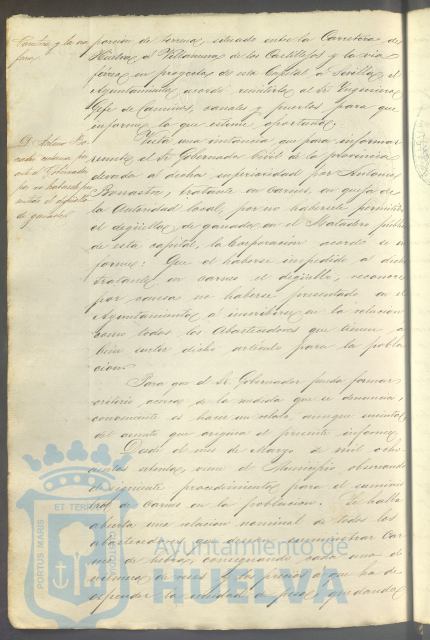 porción de terreno, situado entre la Carretera de
Huelva, á Villanueva de los Castillejos y la vía
férrea en proyecto de esta Capital á Sevilla, el
Ayuntamiento acordó remitirla al Sr. Ingeniero
Gefe de Caminos, canales y puertos para que
informe lo que estime oportuno.
Vista una instancia que para informar
remite el Sr. Gobernador Civil de la provincia
elevada á dicha superioridad por Antonio
tratante en carnes, en queja de
la Autoridad local, por no haberle permitido
el degüello de ganado en el Matadero público
de esta capital, la Corporacion acordó se in
forme: Que el haberse impedido al dicho
tratante en carnes el degüello, reconoce
por causa no haberse presentado en el
Ayuntamiento á inscribirse en la relacion
como todos los Abastecedores que tienen á
bien surtir dicho artículo para la pobla
cion.
Para que el Sr. Gobernador pueda formar
criterio acerca de la medida que se denuncia,
conveniente es hacer un relato, aunque sucinto,
del asunto que origina el presente informe.
Desde el mes de Marzo de mil ocho
cientos ochenta, viene el Municipio observando
el siguiente procedimiento para el suminis
tro de carnes en la poblacion. Se halla
abierta una relacion nominal de todos los
abastecedores que desean suministrar car
nes de hebra, consignando cada uno de
los precios a que ha de
expender la unidad de peso, quedando
PORTUS MARIS ET TERRAE CUSTODIA
Ayuntamiento de
HUELVA